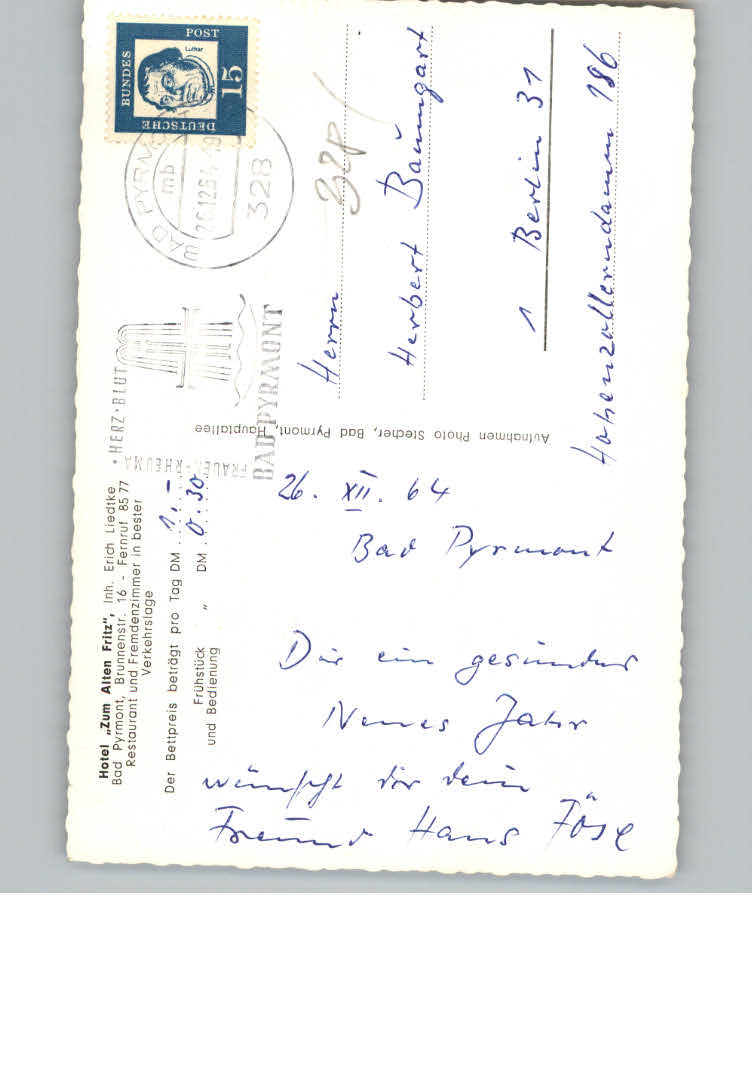 Hotel „Zum Alten Fritz", Inh. Erich Liedtke
Bad Pyrmont, Brunnenstr. 16 - Fernruf 85 77
Restaurant und Fremdenzimmer in bester
Verkehrslage
Der Bettpreis beträgt pro Tag DM 1,-
Frühstück „ DM 0.30
und Bedienung
26. XII. 64
Bad Pyrmont
Dir ein gesundes
Neues Jahr
wünscht dir dein
Freund Hans
Aufnahmen Photo Stecher, Bad Pyrmont, Hauptallee
DEUTSCHE
BUNDES
POST
15
Luther
BAD PYRMONT
mb
328
HERZ·BLUT
FRAUEN-RHEUMA
BAD PYRMONT
Herrn
Herbert Baumgart
1 Berlin 31
Hohenzollerndamm 186